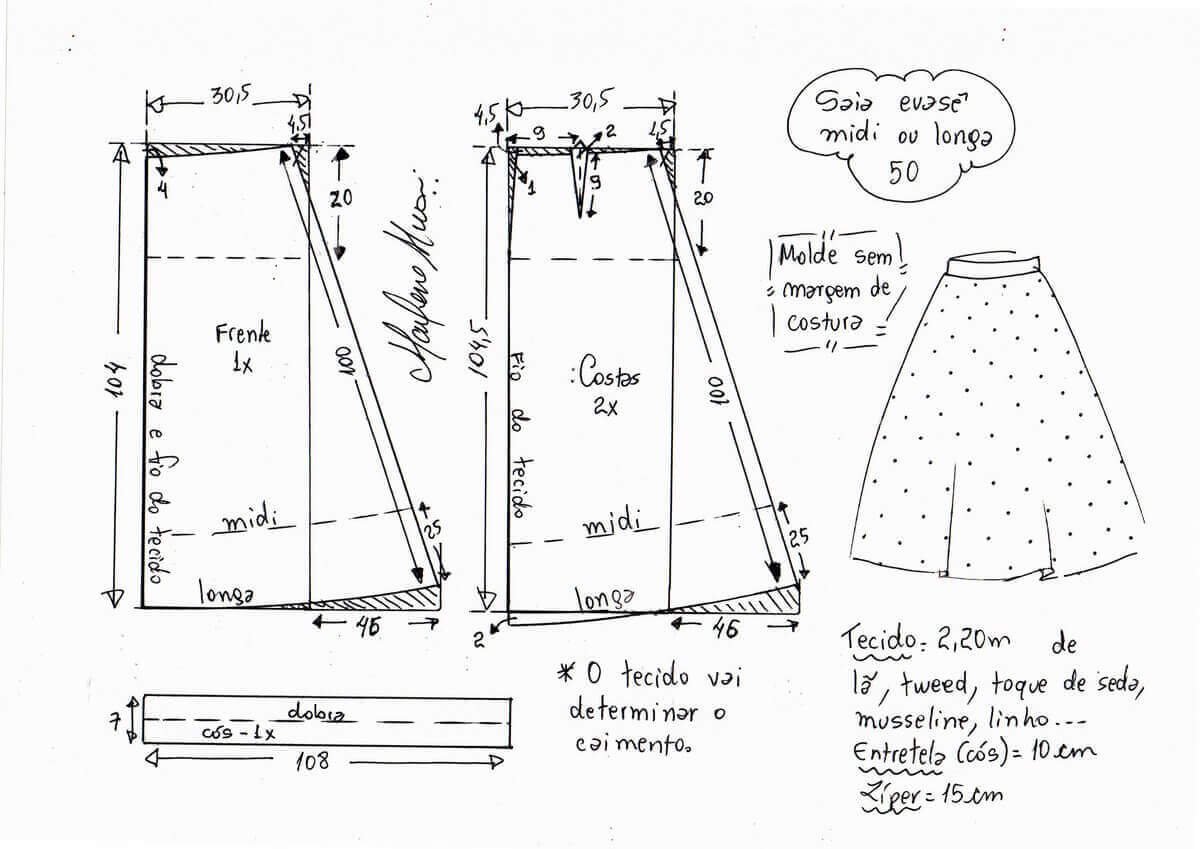 30,5
4,5
4
20
104
Frente
1x
dobra e fio do tecido
100
midi
25
longa
46
30,5
4,5
9
2
1,5
1
9
20
104,5
Fio do tecido
:Costas
2x
100
midi
25
longa
46
2
Saia evasê
midi ou longa
50
Molde sem
margem de
costura
7
dobra
cós - 1x
108
* O tecido vai
determinar o
caimento.
Tecido: 2,20m de
lã, tweed, toque de seda,
musseline, linho...
Entretela (cós) = 10 cm
Zíper = 15 cm